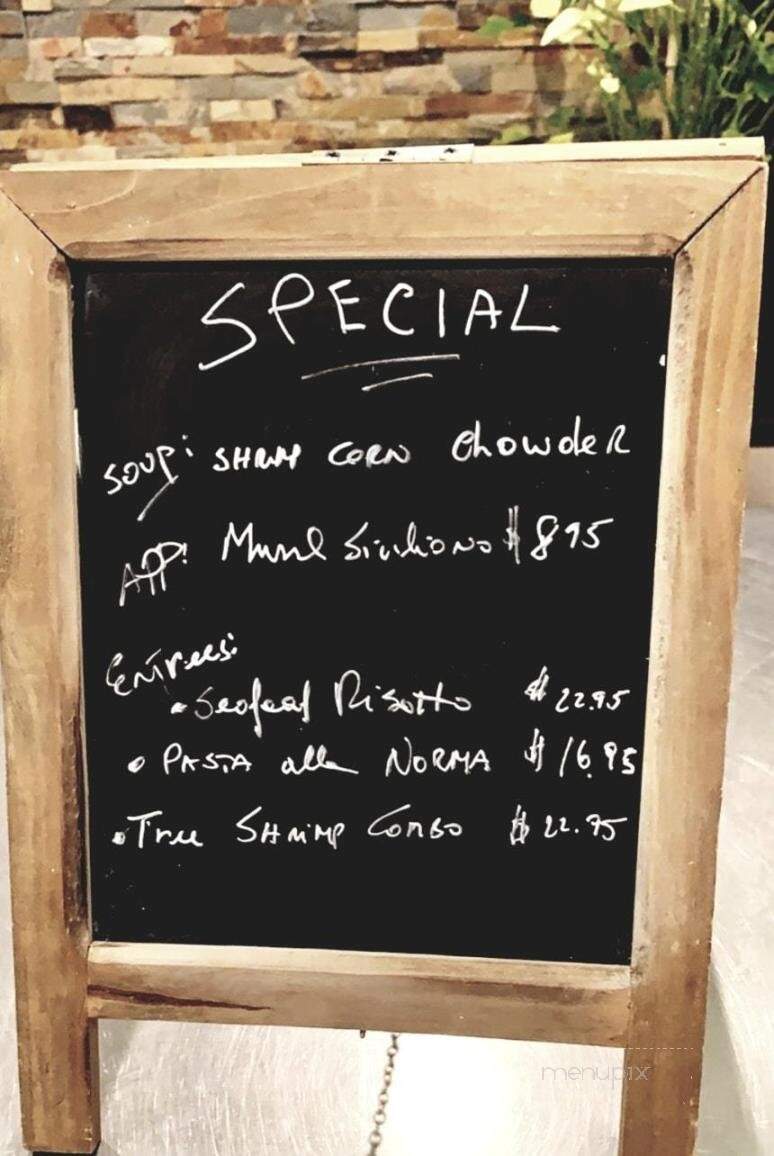 SPECIAL
SOUP: SHRIMP CORN ChowdeR
APP: Mussel Siciliano $ 8 95
ENTrees:
• Seafood Risotto $ 22.95
• PASTA alla NORMA $ 16.95
• Tree SHRIMP COMBO $ 22.95
menupix